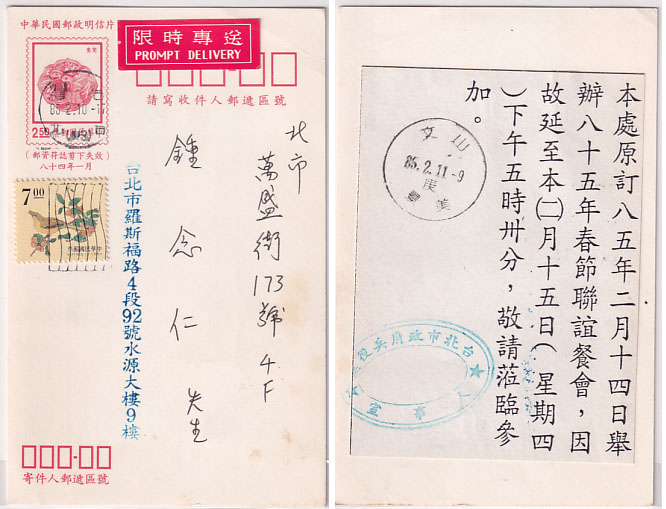 中華民國郵政明信片
限時專送
PROMPT DELIVERY
請寫收件人郵遞區號
85.2.10
2.50
(郵資符誌剪下失效)
八十四年一月
7.00
北市
萬盛街173號4F
鍾念仁 先生
台北市羅斯福路4段92號水源大樓9樓
寄件人郵遞區號
本處原訂八五年二月十四日舉
辦八十五年春節聯誼餐會,因
故延至本(二)月十五日(星期四
)下午五時卅分,敬請蒞臨參
加。
文山
85.2.11-9
台北市政府兵役處
人事室